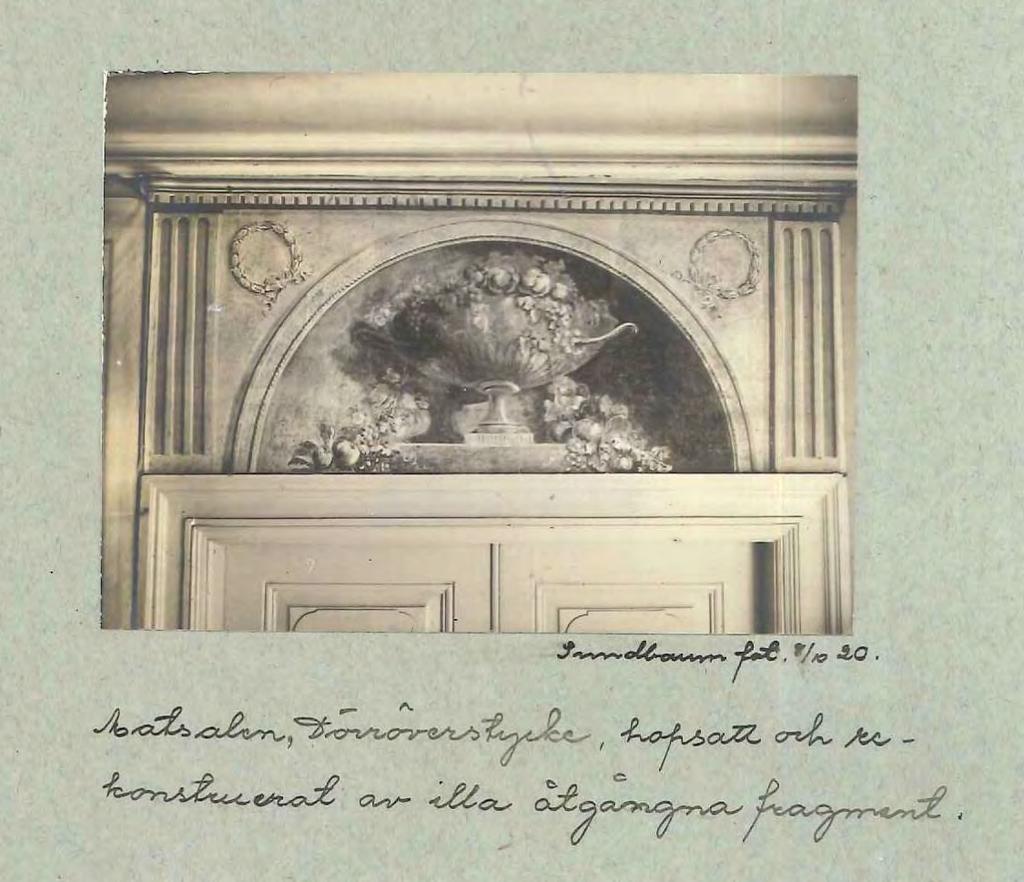 Sundbaum fot. 8/10 20.
Matsalen, Dörröverstycke, hopsatt och re-
konstruerat av illa åtgångna fragment.